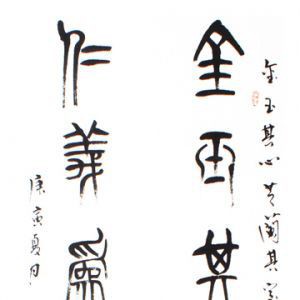 金玉其心芝蘭其室
金玉其
仁義為
庚寅夏月